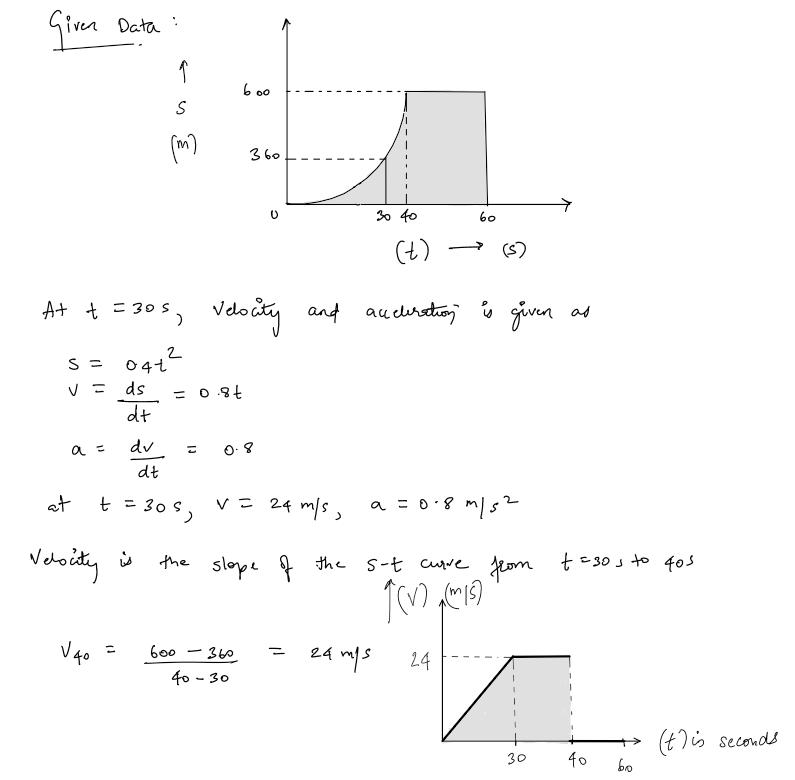 Given Data :
↑
S
(m)
600
360
0
30 40 60
(t) → (s)
At t = 30 s, Velocity and accleration is given as
s = 04t²
v = ds/dt = 0.8t
a = dv/dt = 0.8
at t = 30 s, v = 24 m/s, a = 0.8 m/s²
Velocity is the slope of the s-t curve from t = 30 s to 40s
↑(V) (m/s)
V40 = (600 - 360)/(40 - 30) = 24 m/s
24
30 40 60
(t) is seconds